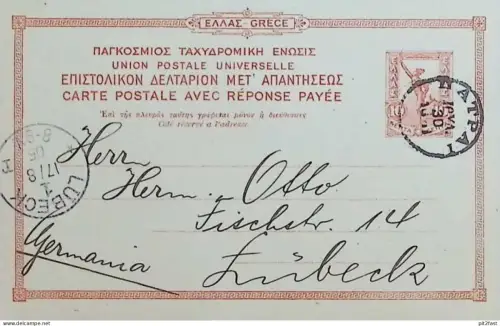 ΕΛΛΑΣ GRECE
ΠΑΓΚΟΣΜΙΟΣ ΤΑΧΥΔΡΟΜΙΚΗ ΕΝΩΣΙΣ
UNION POSTALE UNIVERSELLE
ΕΠΙΣΤΟΛΙΚΟΝ ΔΕΛΤΑΡΙΟΝ ΜΕΤ' ΑΠΑΝΤΗΣΕΩΣ
CARTE POSTALE AVEC RÉPONSE PAYÉE
Ἐπὶ τῆς πλευρᾶς ταύτης γράφεται μόνον ἡ διεύθυνσις
Côté réservé à l'adresse
10
ΠΑΤΡΑΙ
30
LÜBECK
17/8
05
8-9
Herrn
Herm. Otto
Fischstr. 14
Lübeck
Germania